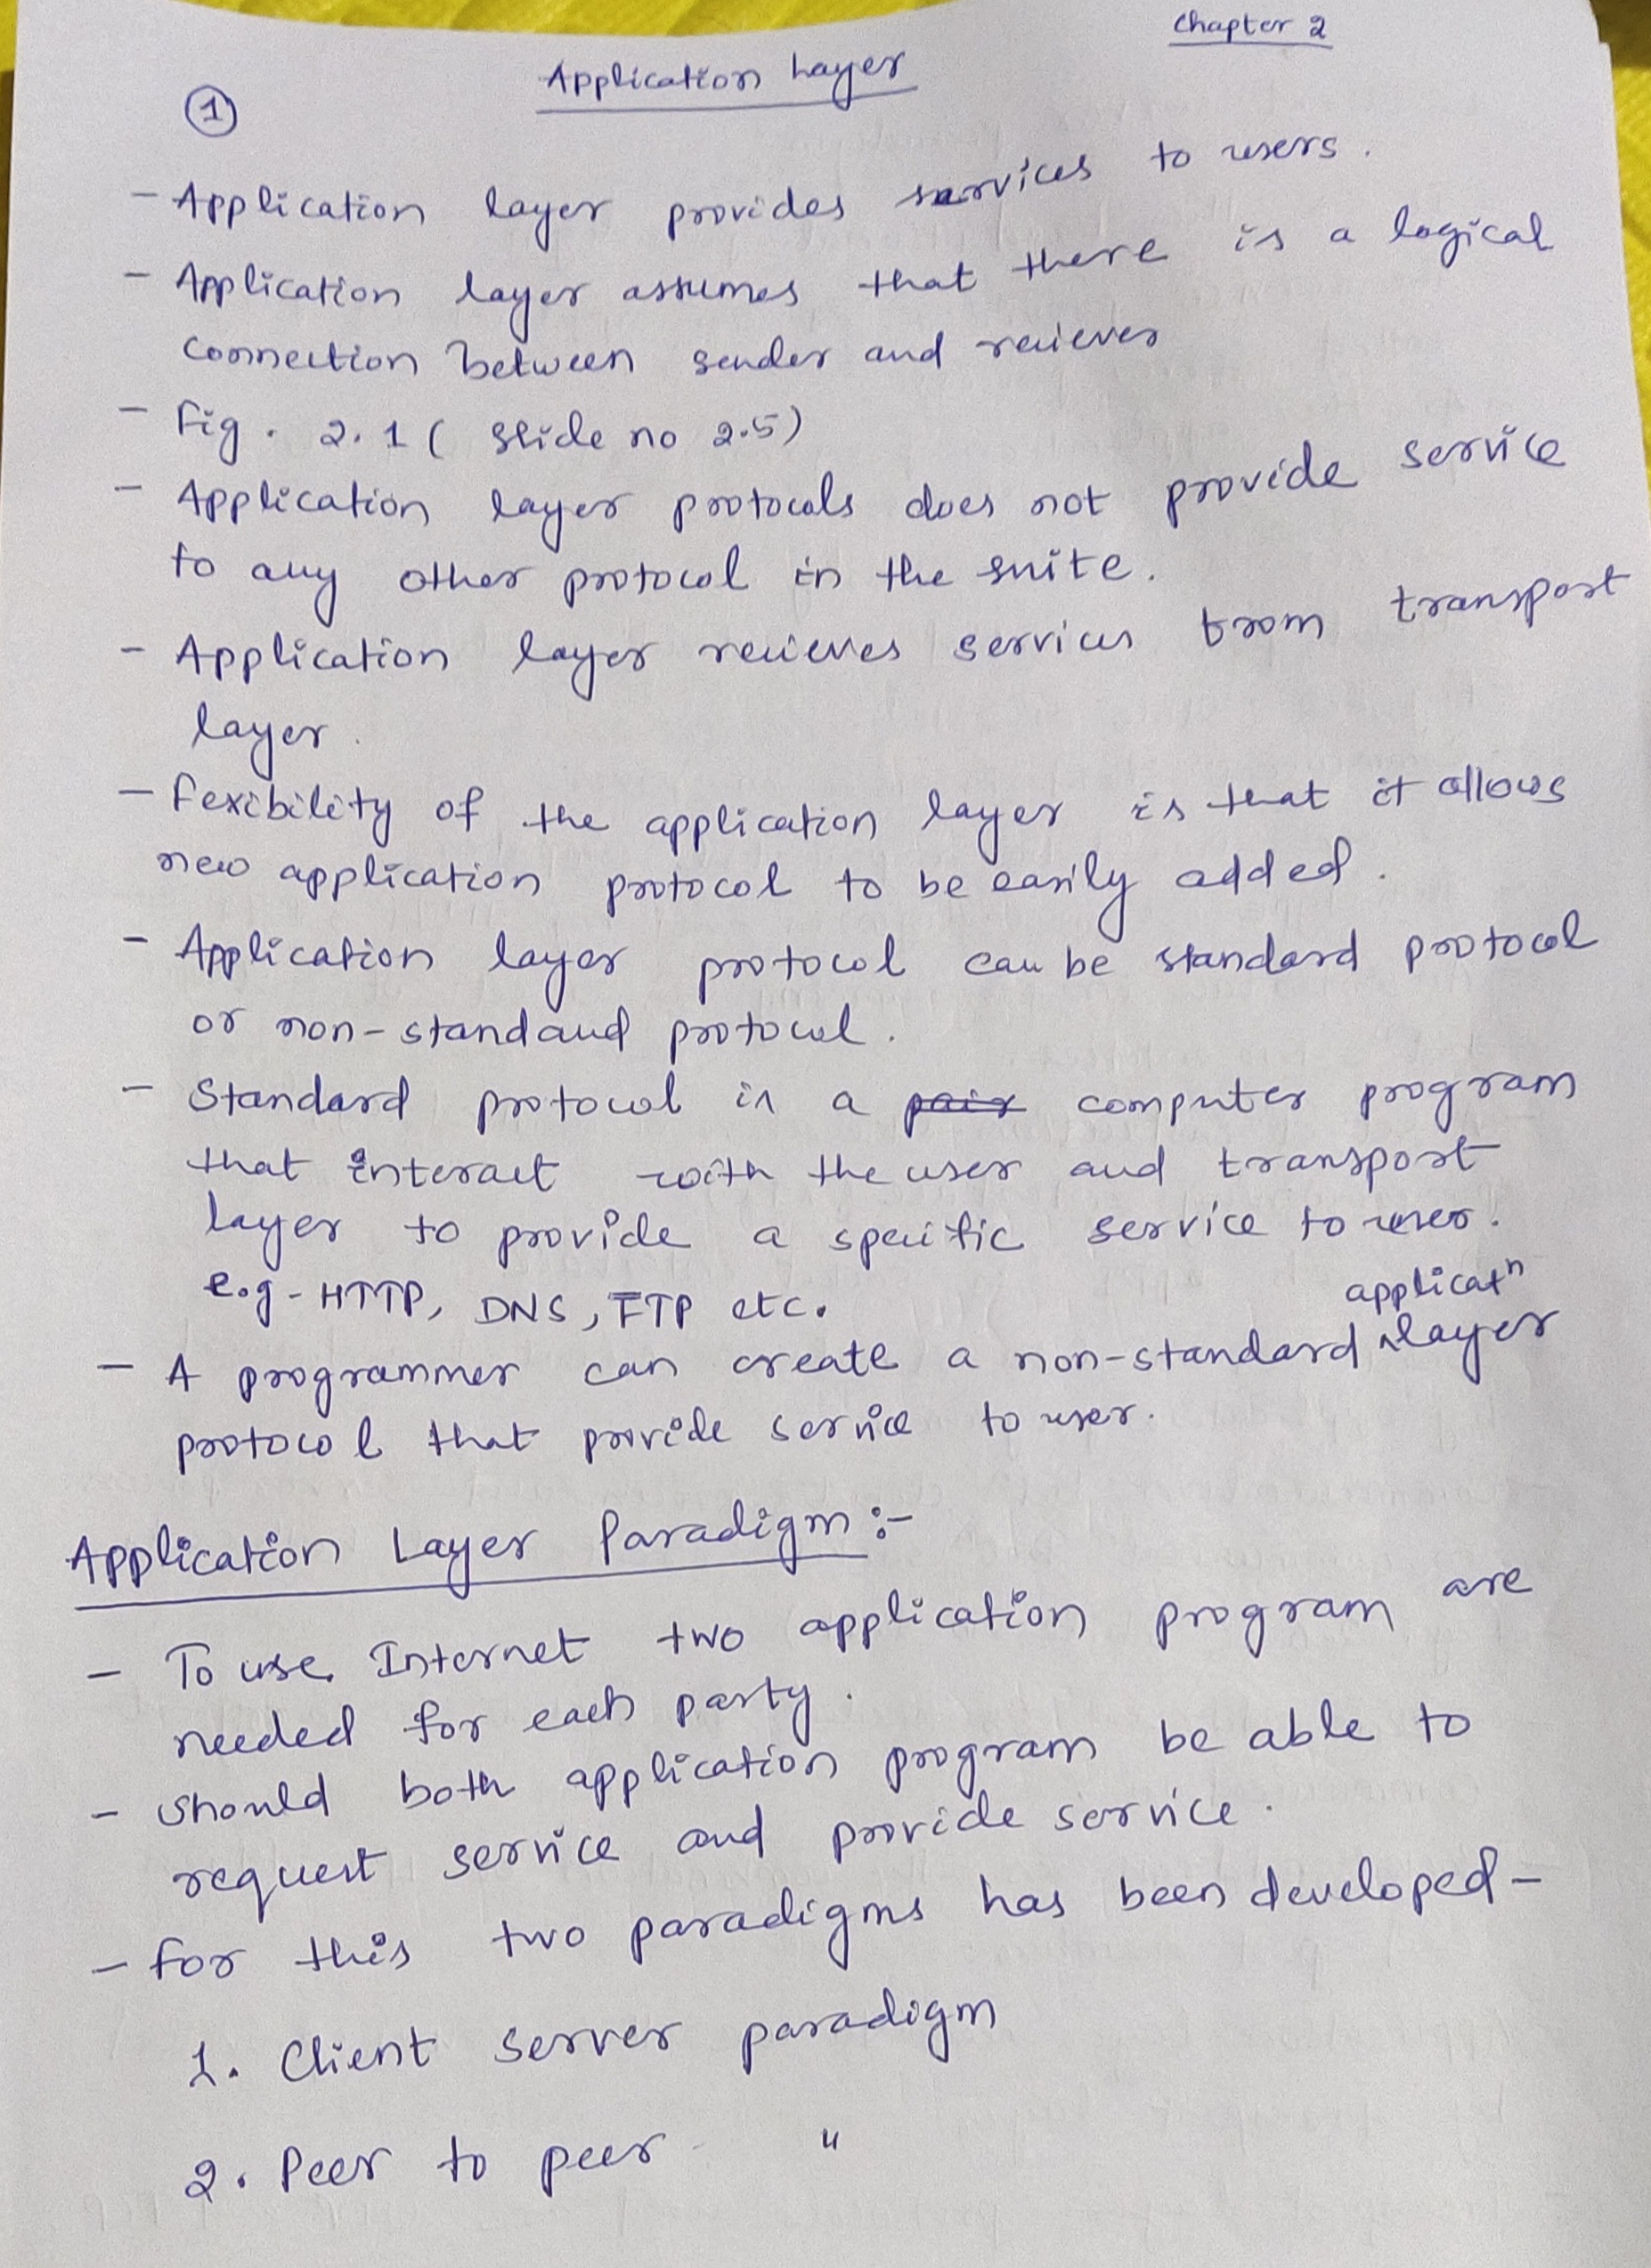 Chapter 2
Application Layer
1
- Application layer provides services to users.
- Application layer assumes that there is a logical
connection between sender and reciever
- Fig. 2.1 ( slide no 2.5)
- Application layer protocols does not provide service
to any other protocol in the suite.
- Application layer recieves services from transport
layer.
- Fexibility of the application layer is that it allows
new application protocol to be easily added.
- Application layer protocol can be standard protocol
or non-standard protocol.
- Standard protocol is a pair computer program
that interact with the user and transport
layer to provide a specific service to user.
e.g - HTTP, DNS, FTP etc.
applicatn
- A programmer can create a non-standard layer
protocol that provide service to user.
Application Layer Paradigm :-
- To use Internet two application program are
needed for each party.
- Should both application program be able to
request service and provide service.
- For this two paradigms has been developed -
1. Client server paradigm
2. Peer to peer "